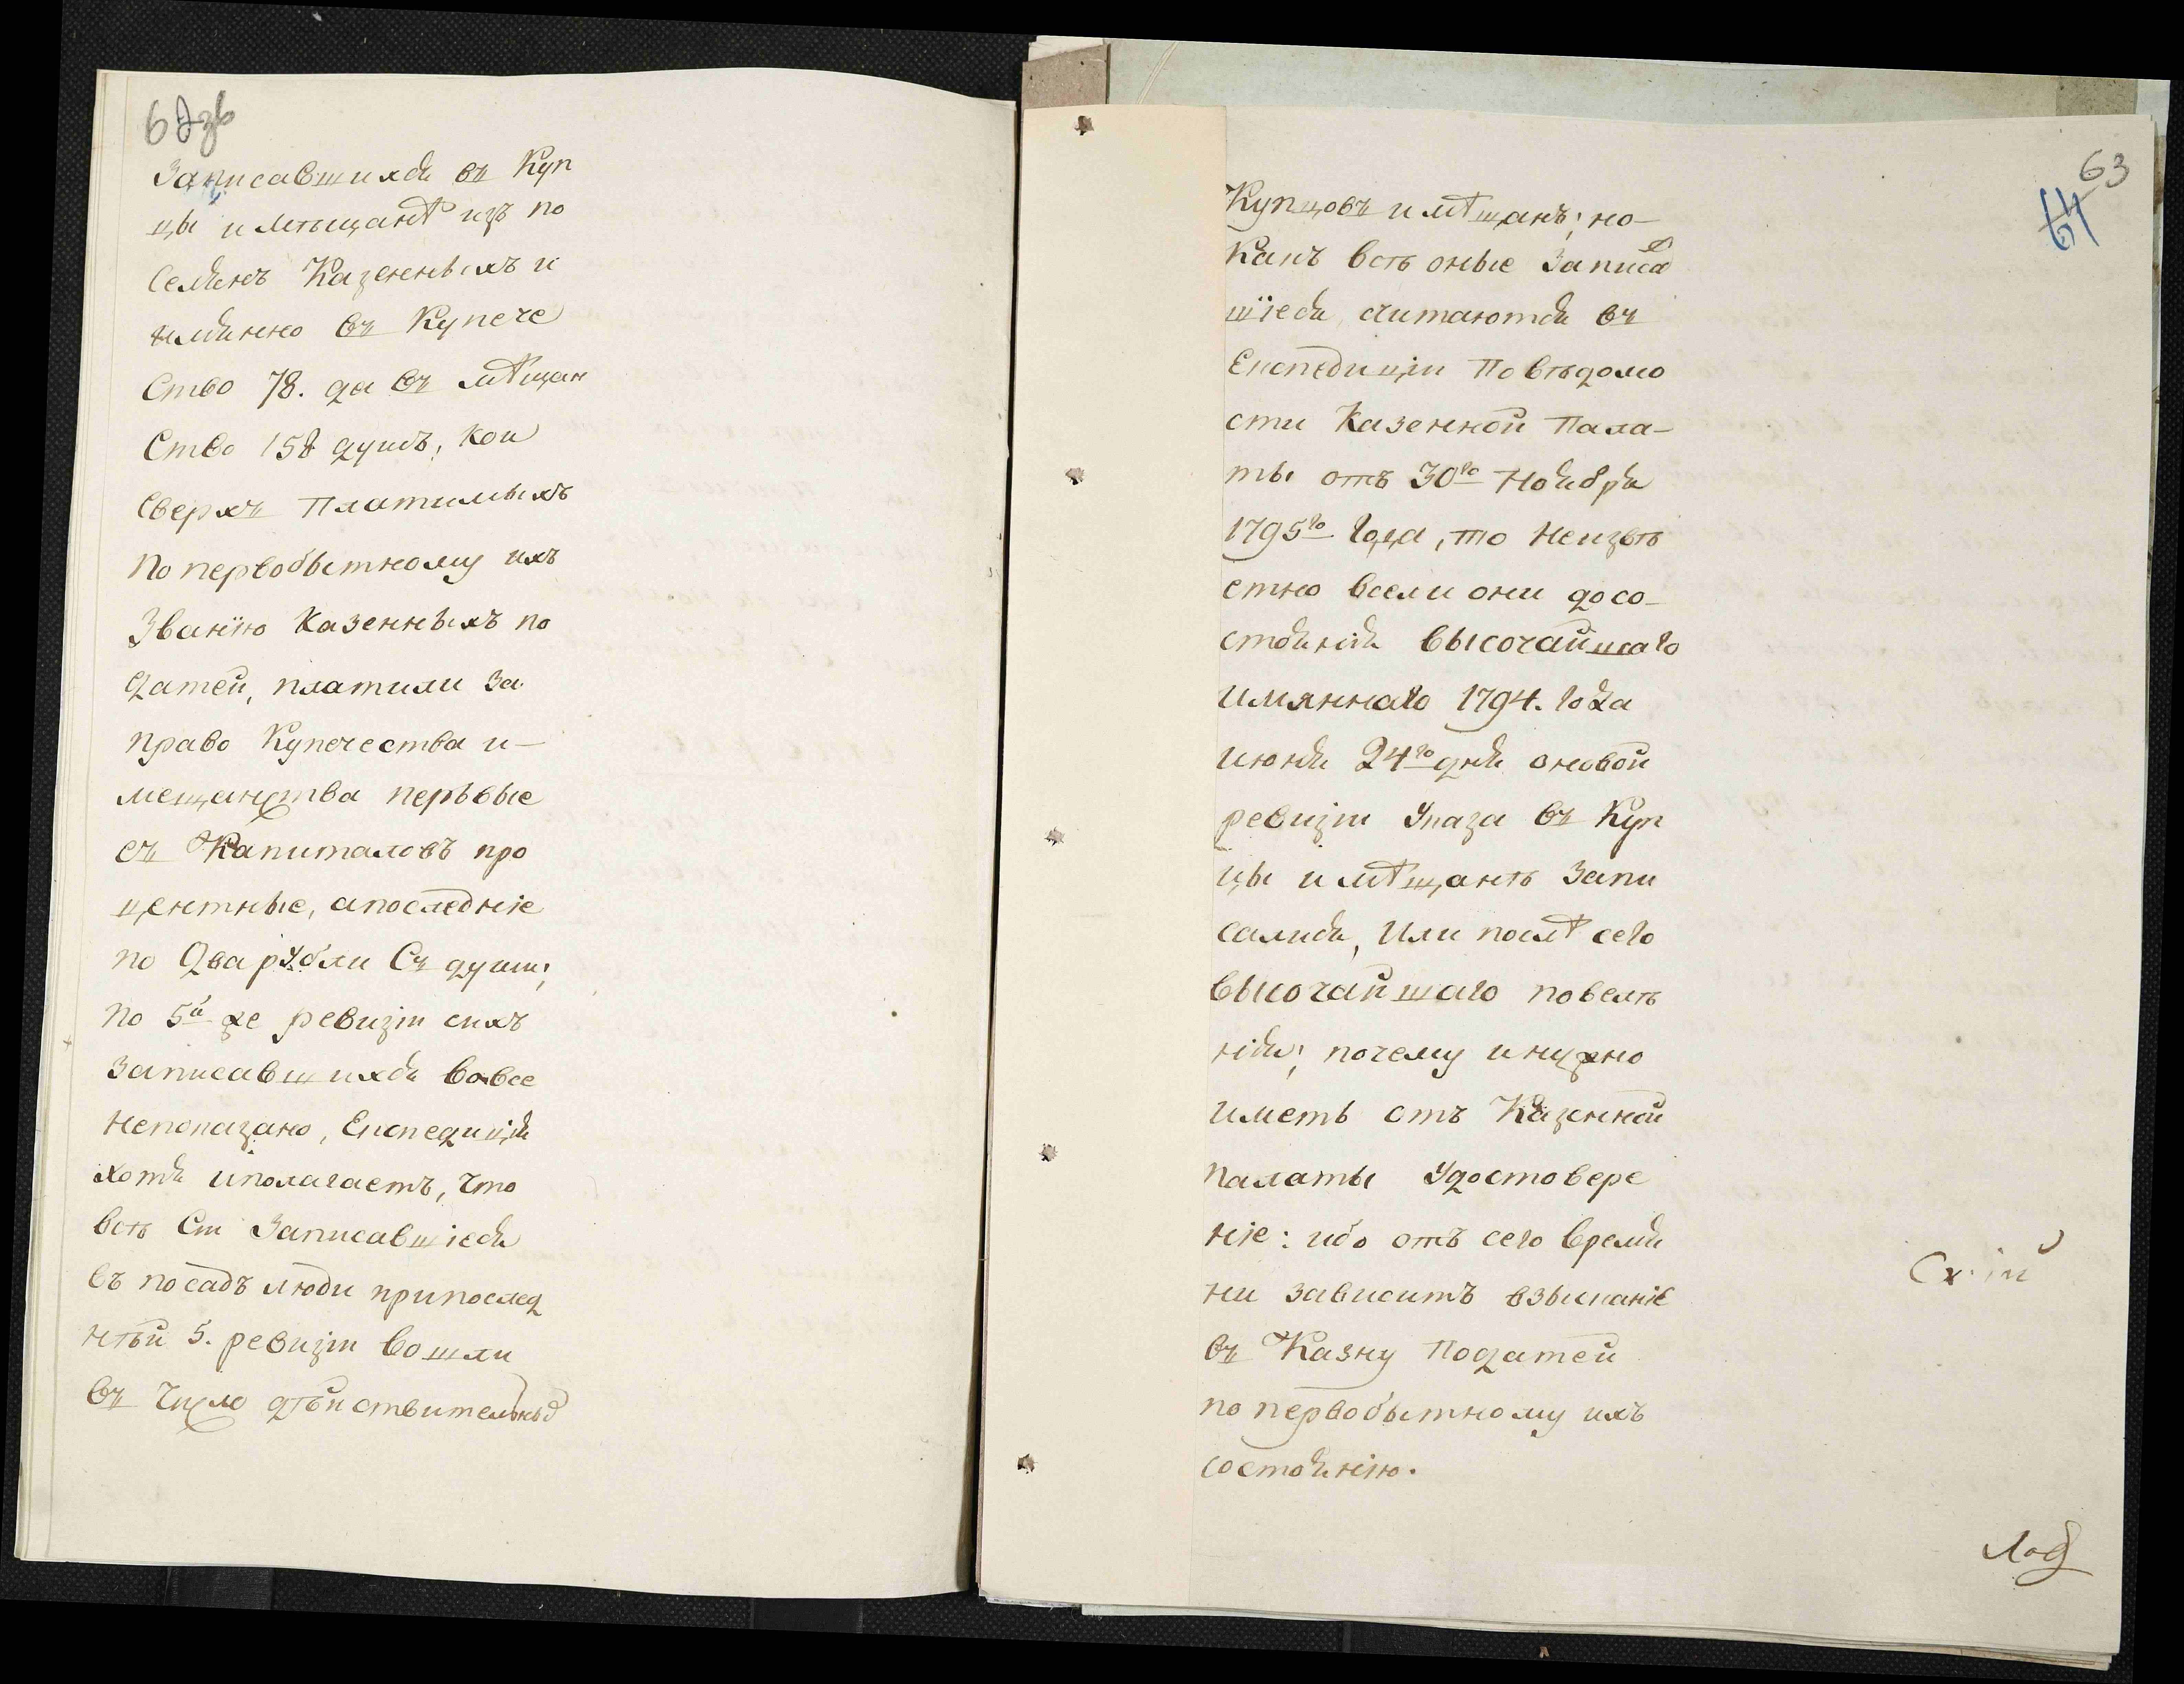 62 зв
Записавшихся въ Куп
цы и мѣщанѣ изъ по
селянъ Казенныхъ и
имянно въ Купече
ство 78. да въ мѣщан
ство 158 душъ, кои
сверхъ платимыхъ
по первобытному ихъ
званїю казенныхъ по
датей, платили за
право Купечества и-
мещанства перьвые
съ Капиталовъ про
центные, апоследніе
по два рубли съ души;
по 5й же ревизіи сихъ
записавшихся вовсе
непоказано, Експедиція
хотя иполагаетъ, что
всѣ сіи записавшіеся
въ посадъ люди припослед
нѣй 5. ревизіи вошли
въ число дѣйствительныхъ
63
64
Купцовъ и мѣщанъ; но-
какъ всѣ оные записав
шїеся считаются въ
Експедиціи по вѣдомо
сти Казенной Пала-
ты отъ 30го Ноября
1795го года, то неизвѣ
стно всели они досо-
стоянія высочайшаго
имяннаго 1794. года
июня 24го дня оновой
ревизіи Указа въ Куп
цы и мѣщанѣ запи
сались, или послѣ сего
высочайшаго повелѣ
нія; почему инужно
иметь отъ Казенной
палаты удостовере
ніе: ибо отъ сего время
ни зависитъ взысканіе
въ Казну податей
по первобытному ихъ
состоянію.